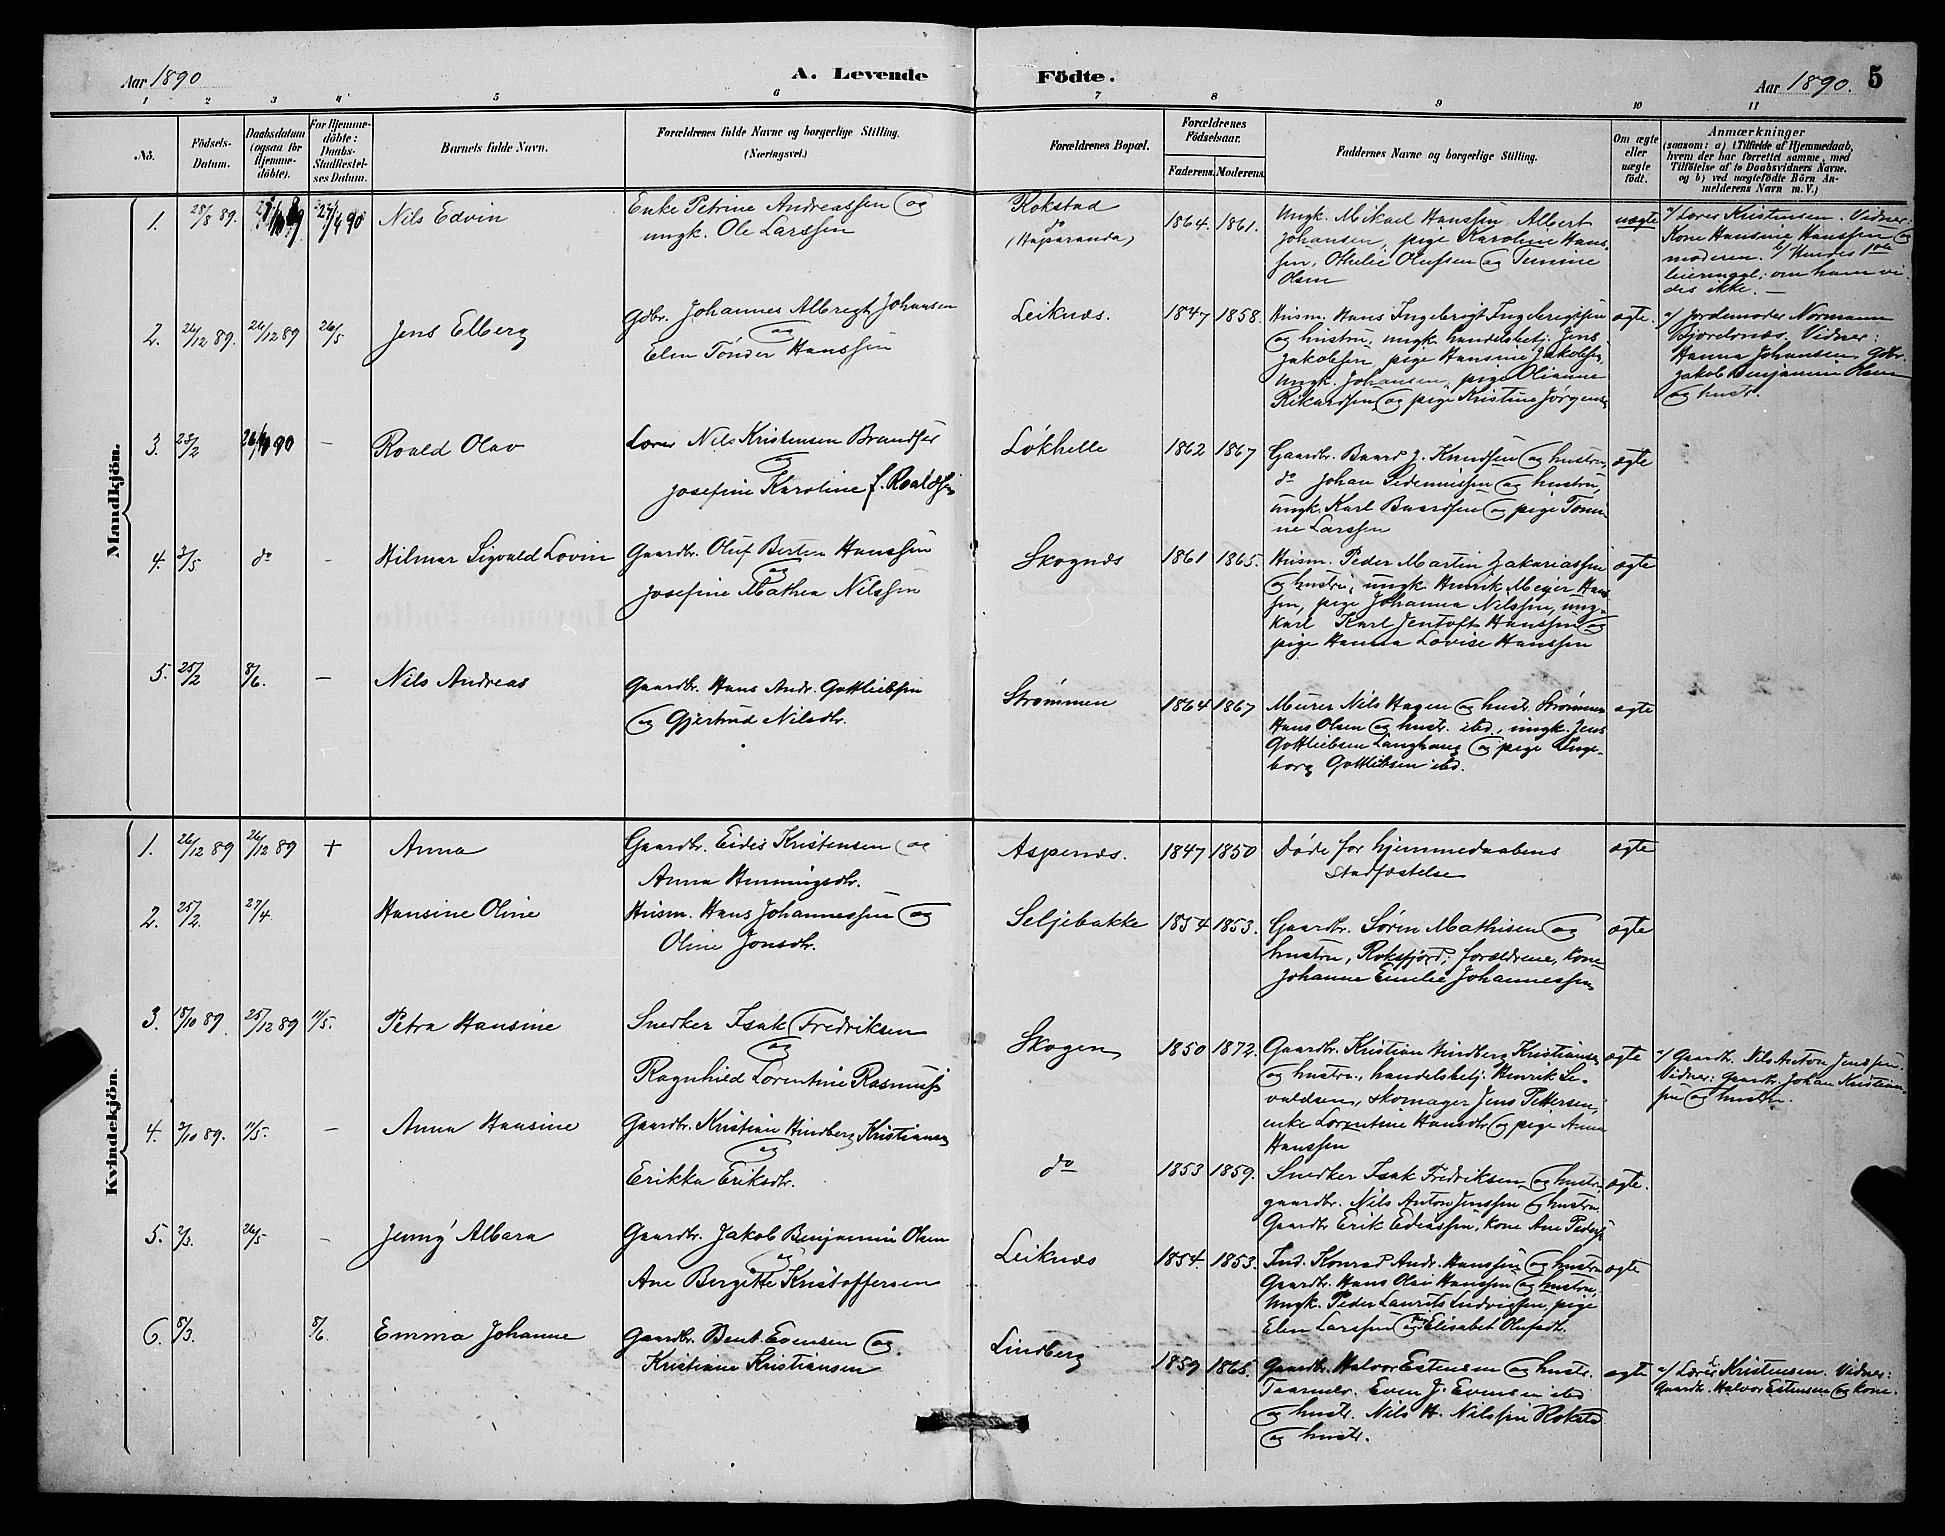 Aar 1890
A. Levende
Födte.
Aar 1890.
5
1 2 3 4 5 6 7 8 9 10 11
No.
Födsels-
Datum.
Daabsdatum
(ogsaa for
Hjemme-
döbte).
For Hjemme-
döbte:
Daabs-
Stadfæstel-
ses Datum.
Barnets fulde Navn.
Forældrenes fulde Navne og borgerlige Stilling.
(Næringsvei.)
Forældrenes Bopæl.
Forældrenes
Födselsaar.
Faderens. Moderens.
Faddernes Navne og borgerlige Stilling.
Om ægte
eller
uægte
födt.
Anmærkninger
(saasom: a) i Tilfælde af Hjemmedaab,
hvem der har forrettet samme, med
Tilföielse af to Daabsvidners Navne.
og b) ved uægtefödte Börn An-
melderens Navn m. V.)
Mandkjön.
1. 28/8 89. 27/4 90 Nils Edvin
Enke Petrine Andreassen og
ungk. Ole Larssen
Rokstad
(Haparanda)
1864. 1861.
Ungk. Mikael Hanssen, Albert
Johansen, pige Karoline Hans-
sen, Othelie Olufsen og Temine
Olsen
uægte
a/ Lærer Kristensen. Vidner:
Kone Hansine Hanssen og
moderen. b/ Hendes 1ste
leiermaal; om ham vi-
des ikke. —
2. 26/12 89. 26/12 89 26/5 Jens Elberg
Gdbr. Johannes Albregt Johansen
og
Elen Tønder Hanssen
Leiknæs.
1847 1858.
Husm. Hans Ingebrigt Ingebrigtsen
og hustru, ungk. handelsbetj. Jens
Jakobsen, pige Hansine Jakobsen,
ungk. Johansen, pige Olianne
Rikardsen og pige Kristine Jørgens.
ægte.
a/ Jordemoder Normann
Gjordenæs. Vidner:
Hanna Johansen, gdbr.
Jakob Benjamin Olsen
og hustr.
3. 23/2 – Roald Olav
Lærer Nils Kristensen Brandser
og
Josefine Karoline f. Roaldsen
Løkhelle
1862 1867
Gaardbr. Baard J. Knudsen og hustru,
do Johan Pedersen og hustru,
ungk. Karl Baardsen og pige Tomi-
ne Larssen
ægte
4. 3/5 do – Hilmar Sigvald Lovin
Gaardbr. Oluf Berten Hanssen
og
Josefine Mathea Nilssen
Skognæs
1861 1865.
Husm. Peder Martin Zakariassen
og hustru, ungk. Henrik Meyer Han-
sen, pige Johanna Nilssen, ung-
karl Karl Jentoft Hanssen og
pige Hanna Lovise Hanssen
ægte
5. 25/2 8/6. – Nils Andreas
Gaardbr. Hans Andr. Gottliebsen
og Gjertrud Nilsdtr.
Strømmen
1864 1867
Murer Nils Hagen og hustr. Strømmen
Hans Olsen og hustr. ibd, ungk. Jens
Gottliebsen Langhaug og pige Inge-
borg Gottliebsen ibd.
ægte
Kvindekjön.
1. 26/12 89 26/12 89 + Anna
Gaardbr. Eides Kristensen og
Anna Henningsdtr.
Aspenæs.
1847 1850
Døde før hjemmedaabens
stadfæstelse
ægte
2. 25/2. 27/4. Hansine Oline
Husm. Hans Johannessen og
Oline Jonsdtr.
Seljebakke
1854 1853.
Gaardbr. Søren Mathisen og
hustru, Roksfjord; forældrene, kone
Johanne Emelie Johannessen
ægte
3. 18/10 89. 25/12 89 11/5. Petra Hansine
Snedker Isak Fredriksen
og
Ragnhild Lorentine Rasmuss.
Skogen
1850 1872.
Gaardbr. Kristian Hindberg Kristiansen
og hustru, handelsbetj. Henrik Si-
valdsen, skomager Jens Pettersen,
enke Lorentine Hansdtr. og pige Anna
Hanssen
ægte
a/ Gaardb. Nils Anton Jenssen.
Vidner: Gaardbr. Johan Kristian-
sen og hustru.
4. 3/10 89. 11/5. – Anna Hansine
Gaardbr. Kristian Hindberg Kristiansen
og
Erikka Eriksdtr.
do
1853 1859.
Snedker Isak Fredriksen og hustr.
gaardbr. Nils Anton Jenssen og hustru
Gaardbr Erik Ediassen, kone Ane Peders.
ægte.
5. 2/3. 26/5 – Jenny Albara
Gaardbr. Jakob Benjamin Olsen
og
Ane Bergitte Kristoffersen
Leiknæs
1854. 1853.
Ind. Konrad Andr. Hanssen og hustru
Gaardbr. Hans Olai Hanssen og hustru,
ungk. Peder Laurits Ludvigsen, pige
Elen Larssen og Elisabet Olufsdt.
ægte
6. 8/3. 8/6. Emma Johanne
Gaardbr. Bent. Evensen og
Kristiane Kristiansen
Lindberg
1859 1865.
Gaardbr. Halvor Estensen og hustr.
Taarnelv. Even J. Evensen ibd
og hustr. Nils H. Nilssen Rokstd
og hustr.
ægte
a/ Lærer Kristensen. Vidner:
Gaardbr. Halvor Estensen og kone.